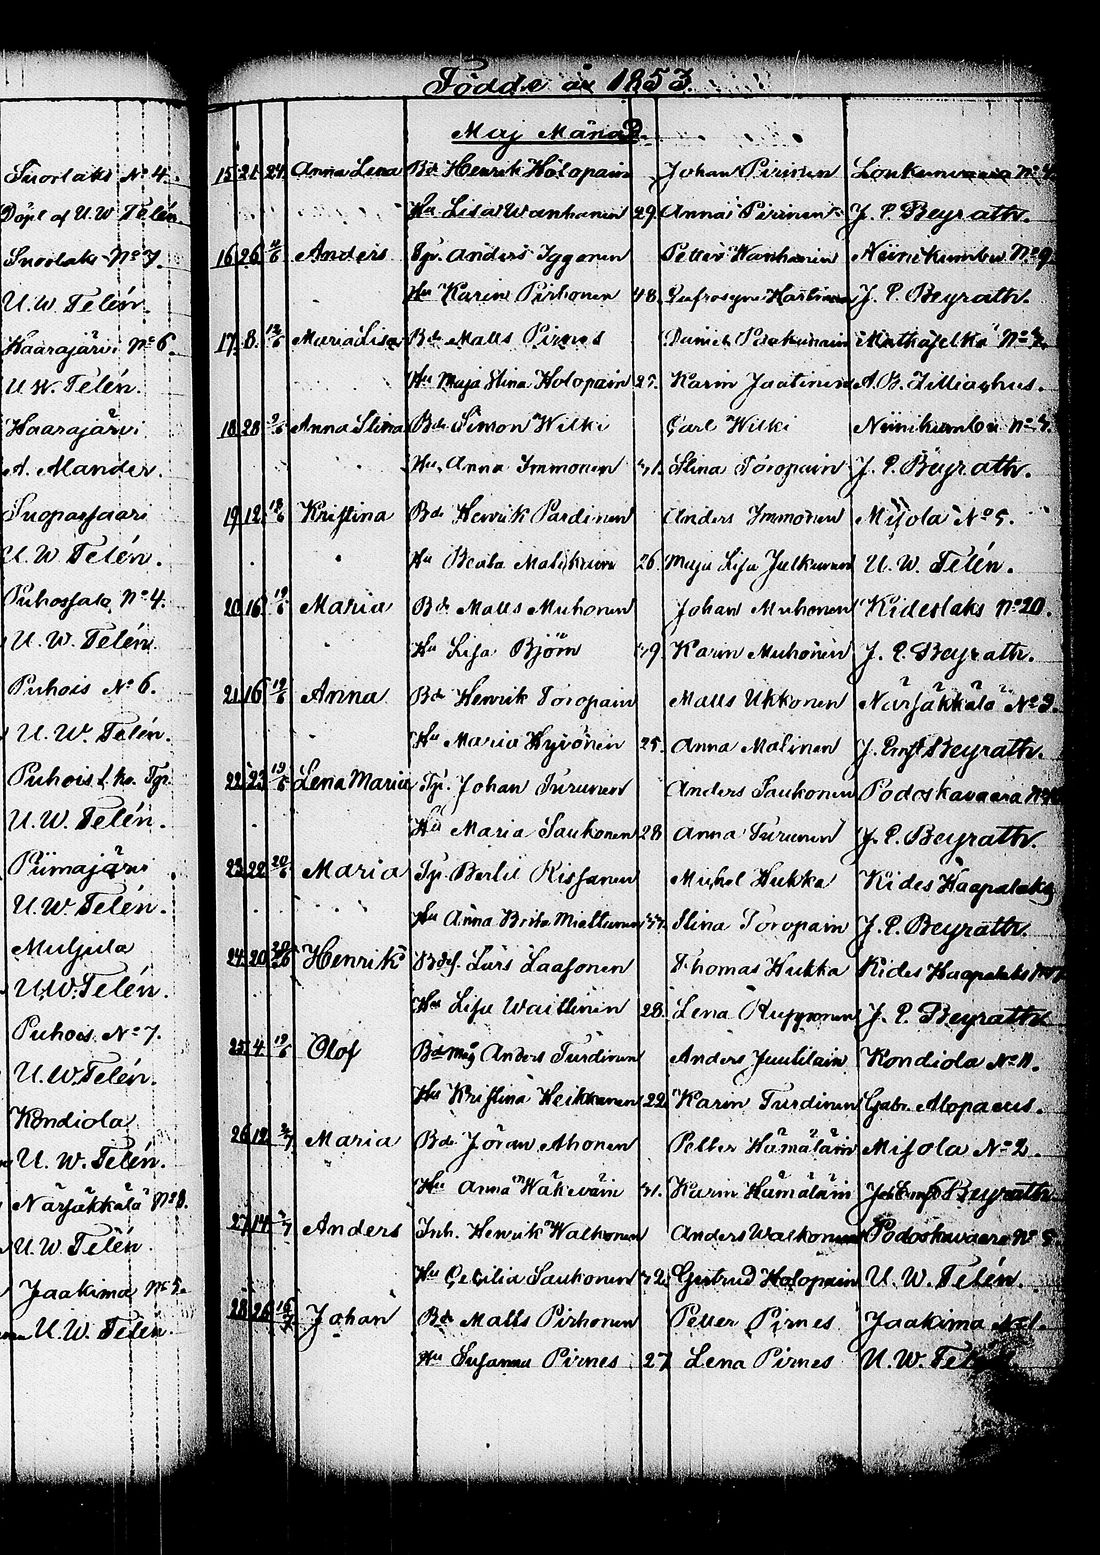 Suorlaks No 4.
Döpt af U. W. Telén.
Suorlaks No 7.
U. W. Telén.
Haarajärvi No 6.
U. W. Telén.
Haarajärvi
A. Alander.
Suoparsaari
U. W. Telén.
Puhossalo No 4.
U. W. Telén.
Puhois No 6.
U. W. Telén.
Puhois
U. W. Telén.
Piimajärvi
U. W. Telén.
Muljula
U. W. Telén.
Puhois No 7.
U. W. Telén.
Kondiola
U. W. Telén.
Närsäkkälä No 8.
U. W. Telén
Jaakima No 5.
U. W. Telén.
Födde år 1853.
Maj Månad.
15 21 24 Anna Lena Bd. Henrik Holopain Johan Pirinen
Hu Lisa Wanhanen 29. Anna Pirinen J. E. Beyrath.
16 26 Anders Anders Iggonen Petter Wanhanen Niinikumbu No 9
Hu Karin Pirhonen 48. J. E. Beyrath.
17 8. 12/6 Maria Lisa Bd. Matts Pirnes
Hu Maja Stina Holopain 27. Karin Jaatinen A. B. Zilliachus.
18 28 Anna Stina Bd. Simon Wilki Carl Wilki Niinikumbu No 7.
Hu Anna Immonen Stina Toropain J. E. Beyrath.
19 12. Kristina Bd. Henrik Pardinen Anders Immonen Misola No 5.
Hu Beata 26. Maja Lisa Julkunen U. W. Telén.
20 16 19/6 Maria Bd. Matts Muhonen Johan Muhonen Kideslaks No 20.
Hu Lisa Björn Karin Muhonen J. E. Beyrath.
21 16 19/6 Anna Bd. Henrik Toropain Matts Ukkonen Närsäkkälä
Hu Maria Hyvönen 25. Anna Malinen J. Ernst Beyrath.
22 23 19/6 Lena Maria Johan Turunen Anders Saukonen Podoskavaara
Hu Maria Saukonen 28 Anna Turunen J. E. Beyrath.
23 22 20/6 Maria Bertil Rissanen Michel Hukka Kides Haapalaks
Hu Anna Brita Miettunen Stina Toropain J. E. Beyrath.
24 20 Henrik Lars Laasonen Thomas Hukka Kides Haapalaks
Hu Lisa Waittinen 28. Lena Rupponen J. E. Beyrath
25 4 19/6 Olof Anders Turdinen Anders Juutilain Kondiola No 11.
Hu Kristina Heikkanen 22. Karin Turdinen Gabr. Alopaeus.
26 12. Maria Bd. Jöran Ahonen Petter Hämäläin Misola No 2.
Hu Anna Wäkeväin Karin Hämäläin Joh. Ernst Beyrath.
27 14 Anders Inh. Henrik Walkonen Anders Walkonen Podoskavaara No 5.
Hu Cecilia Saukonen Gertrud Holopain U. W. Telén.
28 26 16/7 Johan Bd. Matts Pirhonen Petter Pirnes Jaakima No 1.
Hu Susanna Pirnes 27 Lena Pirnes U. W. Telén.